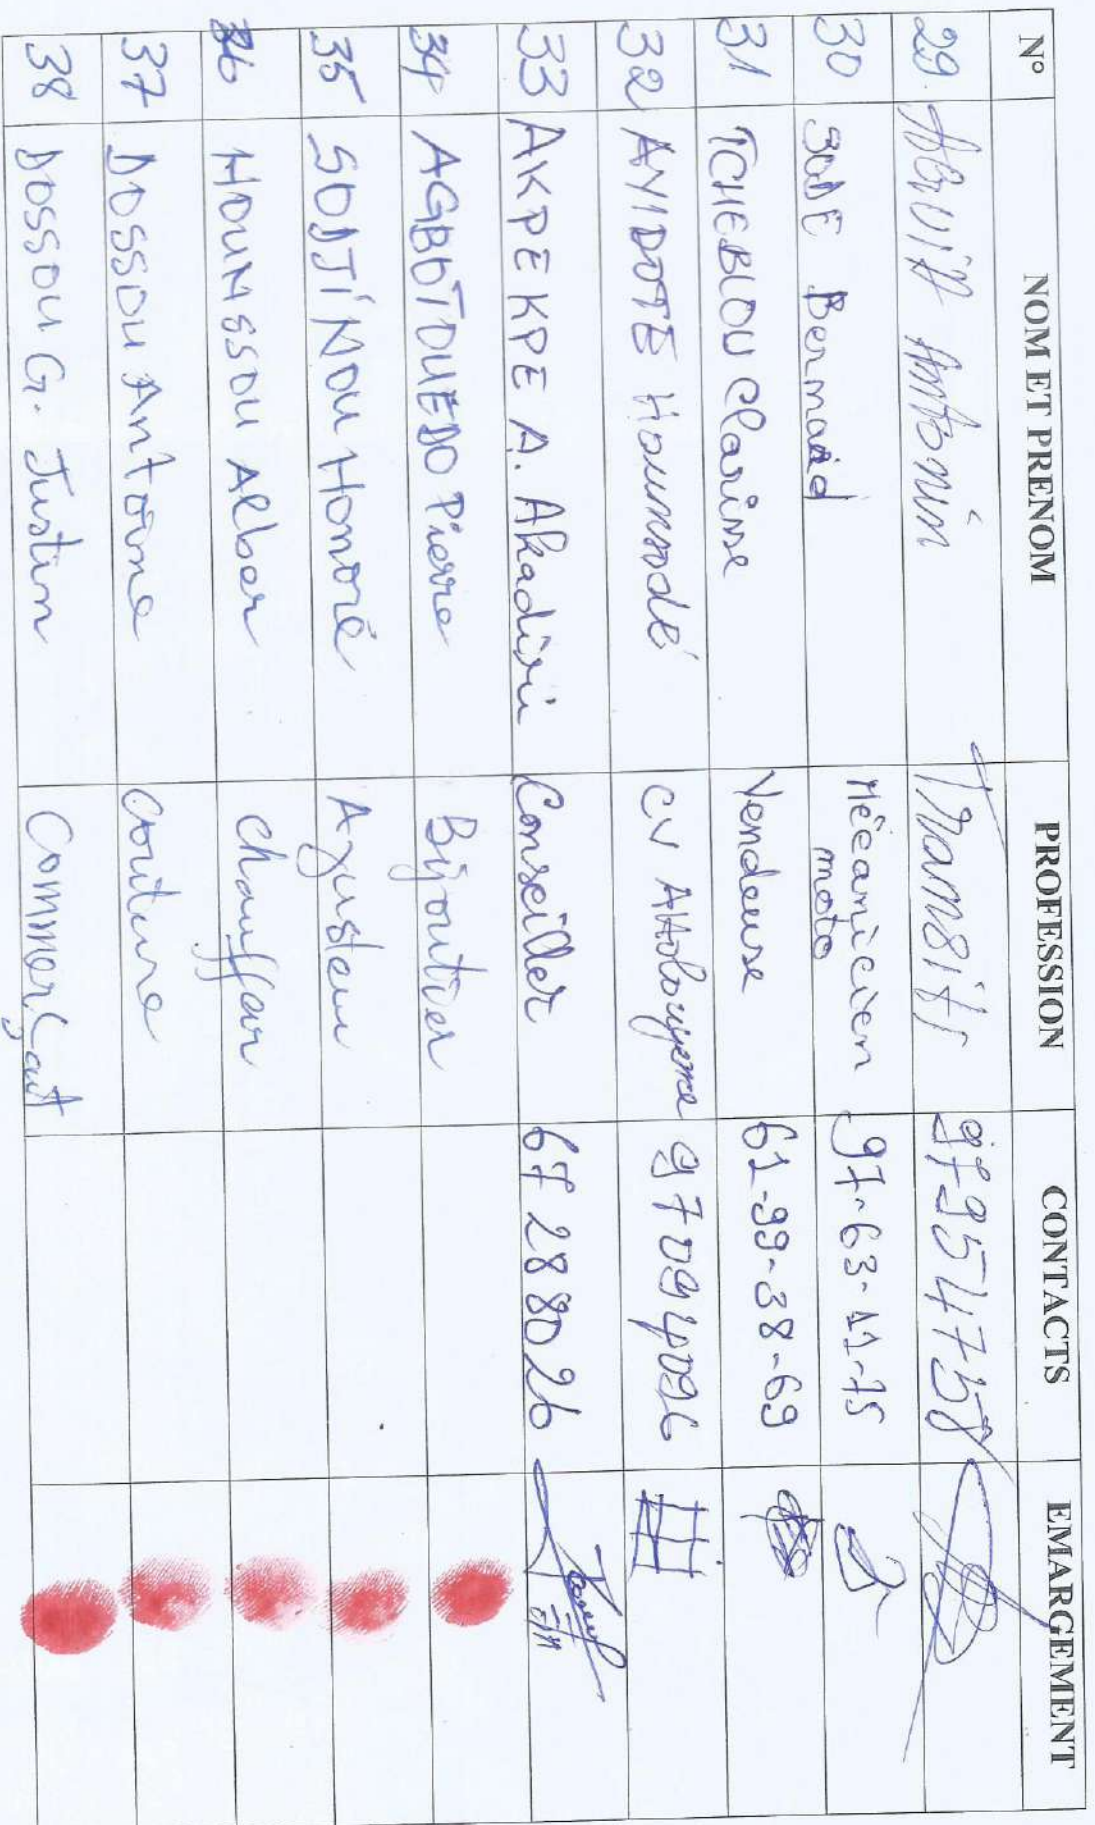 N° NOM ET PRENOM PROFESSION CONTACTS EMARGEMENT
29. Antonin Transit 97954758
30 SODE Bernard Mécanicien moto 97-63-11-75
31 TCHEBLOU Clarisse Vendeuse 61-99-38-69
32 AYIDOTE Hounsodé CV 97094096
33 AKPEKPE A. Akadiri Conseiller 67288026
34 AGBOTOUEDO Pierre Bijoutier
35 SODJINOU Honoré Ajusteu
36 HOUNSSOU Alber Chauffar
37 DOSSOU Antoine Couture
38 DOSSOU G. Justin Commerçant